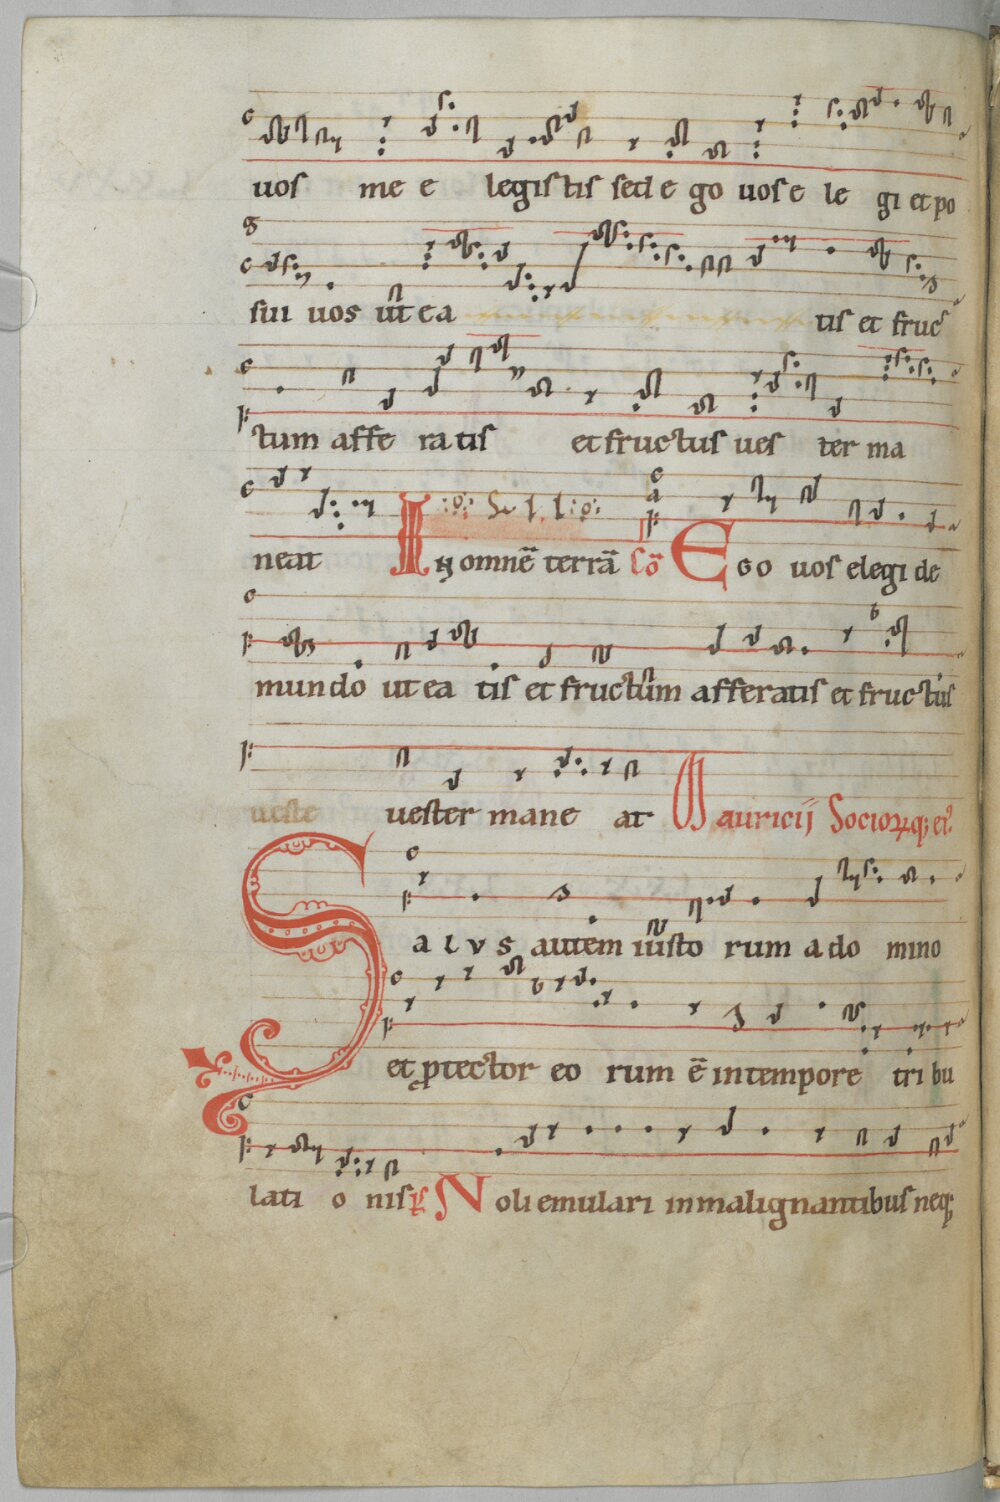 uos me e legistis sed e go uos e le gi et po
sui uos ut e a tis et fruc
tum affe ra tis et fructus ues ter ma
neat In omnē terrā Cō Ego uos elegi de
mundo ut ea tis et fructum afferatis et fructus
ueste uester mane at Mauricij Socioꝝq; ei9
Salvs autem iusto rum a do mino
et ꝓtector eo rum ē in tempore tri bu
lati o nis Noli emulari in malignantibus neq;